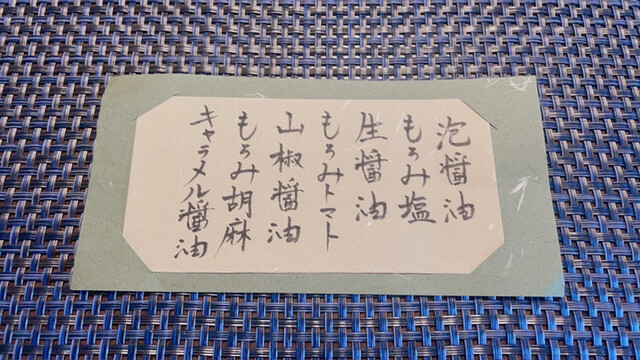 泡醤油
もろみ塩
生醤油
もろみトマト
山椒醤油
もろみ胡麻
キャラメル醤油